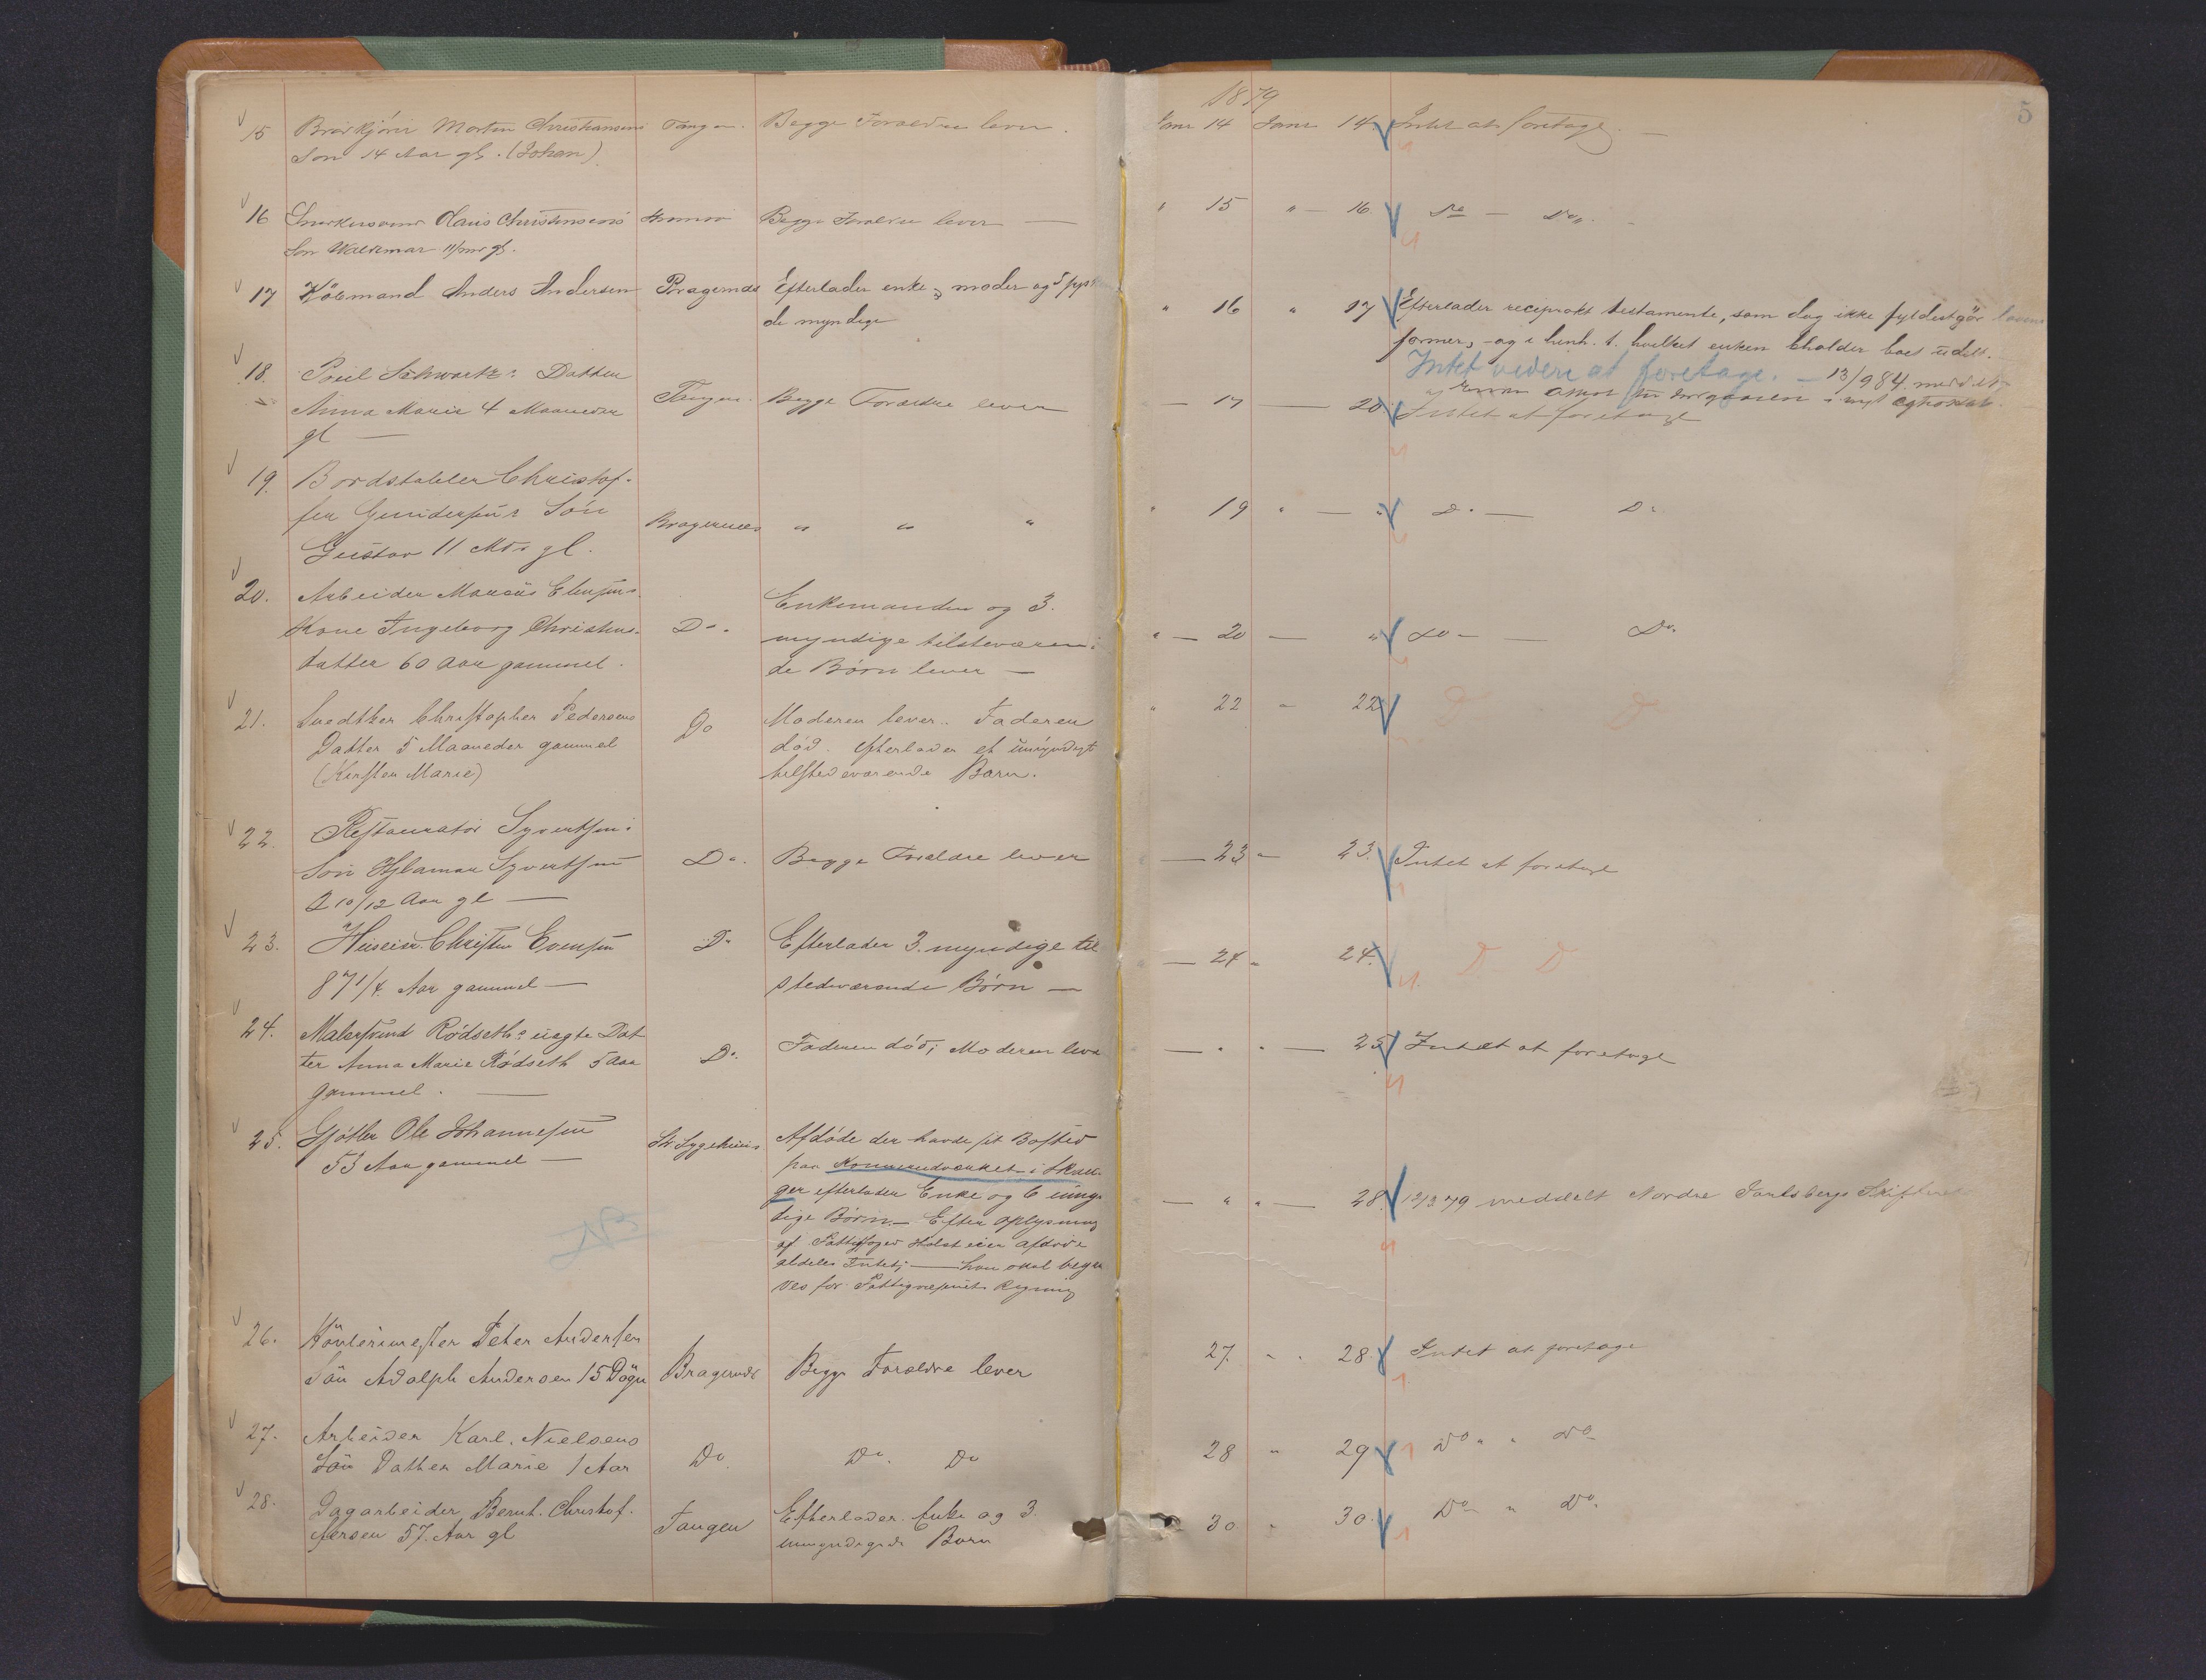 1879
5
15 Morten Christiansens Tangen. Begge Forældre lever. Janr 14 Janr 14 Intet at foretage. —
Søn 14 Aar gl. (Johan)
16 Christensens Strømsø Begge Forældre lever — " 15 " — 16 Do — Do
Søn Waldemar 11/mr gl.
17 Köbmand Anders Andersen Bragernæs Efterlader enke, moder og 5
de myndige
" 16 " 17 Efterlader reciprokt testamente, som dog ikke fyldestgör lovens
former, og i henh. t. hvilket enken beholder boet udelt.
Intet videre at foretage. — 13/9 84 meddelt
18. Poul Schwartz's Datter
Anna Marie 4 Maaneder Tangen Begge Forældre lever — 17 — 20 Intet at foretage
gl —
19. Bordstabler Christof-
fer Gundersens Søn Bragernæs " " " " 19 " — " D. — D.
Gustav 11 Mdr gl.
20. Arbeider Marcus
Kone Ingeborg Christens- Do.
datter 60 Aar gammel.
Enkemanden og 3.
myndige tilsteværen-
de Børn lever —
" — 20 — " Do — — Do
21. Christopher Pedersens Do Moderen lever. Faderen " 22 " 22 D D
Datter 5 Maaneder gammel død. efterlader et umyndigt
(Kirsten Marie) tilstedeværende Barn.
22. Restauratør Syvertsens
Søn Hjlamar Syvertsen Do. Begge Forældre lever — 23 " 23. Intet at foretage
2 10/12 Aar gl —
23. Christen Evensen Do Efterlader 3. myndige til — 24 " 24. D D
87 1/4. Aar gammel — stedværende Børn —
24. Rødseths uægte Dat
ter Anna Marie Rødseth 5 Aar Do. Faderen død; Moderen lever — " " — 25 Intet at foretage
gammel. —
25. Ole Johannesen Str Sygehuus Afdøde der havde sit Bosted
53 Aar gammel — paa i Skou-
ger efterlader Enke og 6 umyn-
dige Børn. — Efter Oplysning
af Fattigfoged Holst eier afdøde
aldeles Intet; — han skal begra
ves for Fattigvæsenets Regning
— " " — 28. 12/3 79 meddelt Nordre Jarlsbergs Skifteret
NB
26. Peter Andersen
Sön Adolph Andersen 15 Dögn Bragernæs Begge Forældre lever 27. " " 28. Intet at foretage
27. Arbeider Karl. Nielsens
Sön Datter Marie 1 Aar Do. Do. Do 28 " 29 Do " " Do
28. Dagarbeider Bernt. Christof-
fersen 57. Aar gl Tangen Efterlader Enke og 3
umyndige Børn
30 " 30. Do " Do.